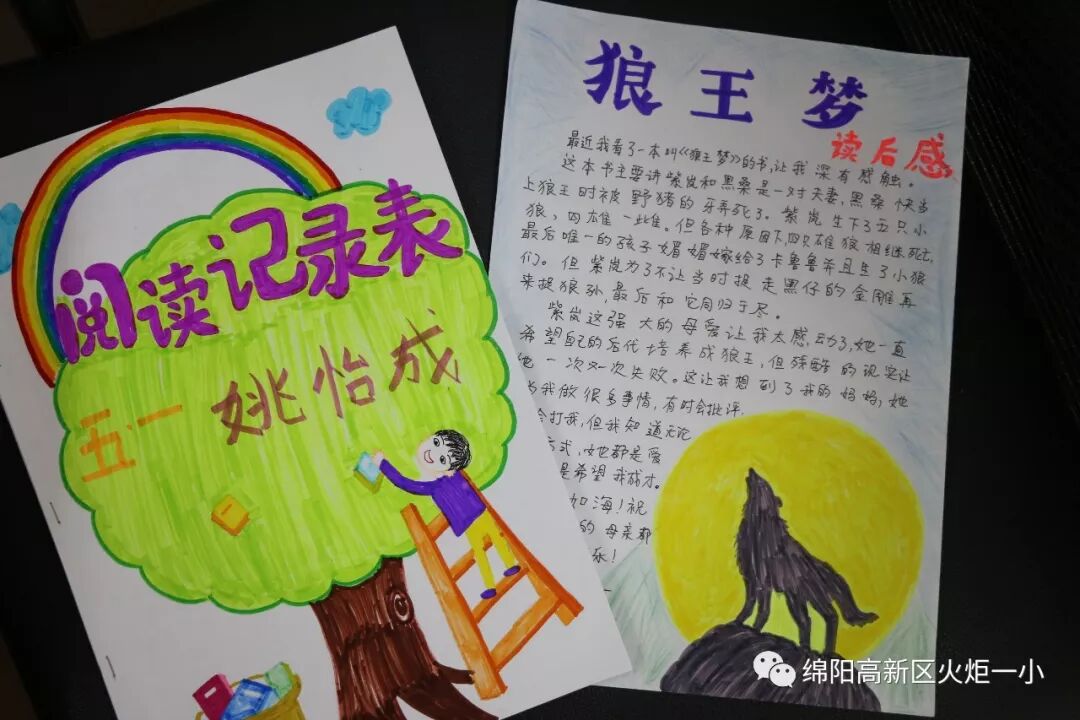 阅读记录表
五一 姚怡成
狼王梦
读后感
最近我看了一本叫《狼王梦》的书,让我深有感触。
这本书主要讲紫岚和黑桑是一对夫妻,黑桑快当
上狼王时被野猪的牙弄死了。紫岚生下了五只小
狼,四雄一雌。但各种原因下,四只雄狼相继死去,
最后唯一的孩子媚媚嫁给了卡鲁鲁并且生了小狼
们。但紫岚为了不让当时捉走黑仔的金雕再
来捉狼孙,最后和它同归于尽。
紫岚这强大的母爱让我太感动了,她一直
希望自己的后代培养成狼王,但残酷的现实让
他一次又一次失败。这让我想到了我的妈妈,她
为我做很多事情,有时会批评,
会打我,但我知道无论
方式,她都是爱
是希望我成才。
如海!祝
的母亲都
乐!
绵阳高新区火炬一小